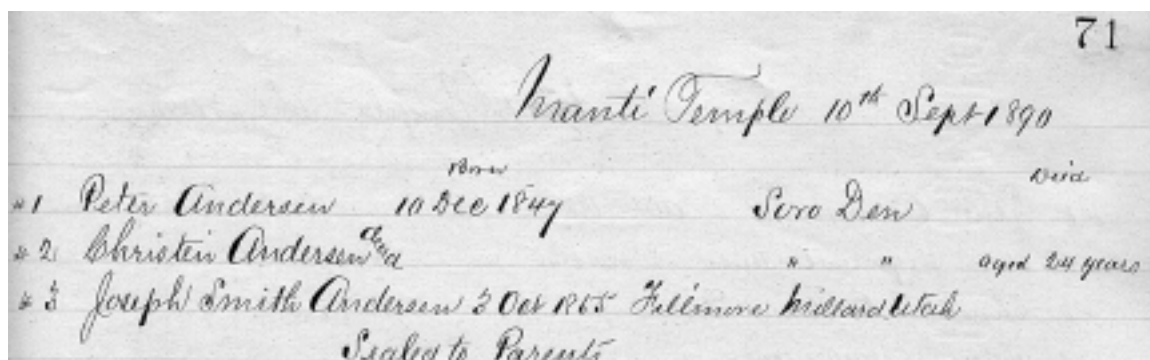 71
Manti Temple 10th Sept 1890
Born Died
#1 Peter Andersen 10 Dec 1847 Soro Den
#2 Christen Andersen dead " " aged 24 years
#3 Joseph Smith Andersen 3 Oct 1865 Fillmore Millard Utah
Sealed to Parents